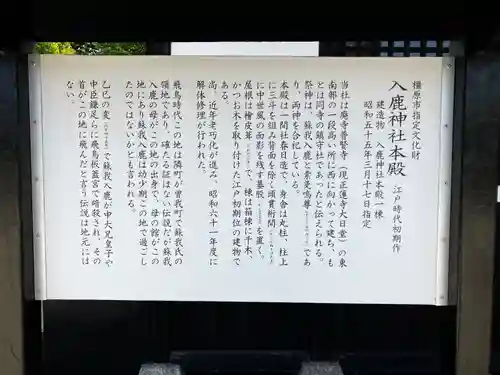 橿原市指定文化財
入鹿神社本殿 江戸時代初期作
建造物 入鹿神社本殿一棟
昭和五十五年三月十七日指定
当社は廃寺普賢寺（現正蓮寺大日堂）の東
南部の一段高い所に西に向かって建ち、も
とは同寺の鎮守社であったと伝えられる。
祭神は、蘇我入鹿と素戔嗚尊であ
り、両神を合祀している。
本殿は一間社春日造で、身舎は丸柱、柱上
に三斗を組み背面を除く頭貫桁間
に中世風の面影を残す蟇股、を置く。
屋根は檜皮葺で、棟は箱棟に千木、
かつお木を取り付けた江戸初期位の建物で
ある。
尚、近年老朽化が進み、昭和六十一年度に
解体修理が行われた。
飛鳥時代この地は隣町が曽我町で蘇我氏の
領地であり、確たる証はないが伝説だが蘇我
入鹿の母がこの地の出身で、母の館がこの
地にあり蘇我入鹿は幼少期この地で過ごし
たのではないかとも言われる。
乙巳の変で蘇我入鹿が中大兄皇子や
中臣鎌足らに飛鳥板蓋宮で暗殺され、その
首がこの地に飛んだと言う伝説は地元には
ない。